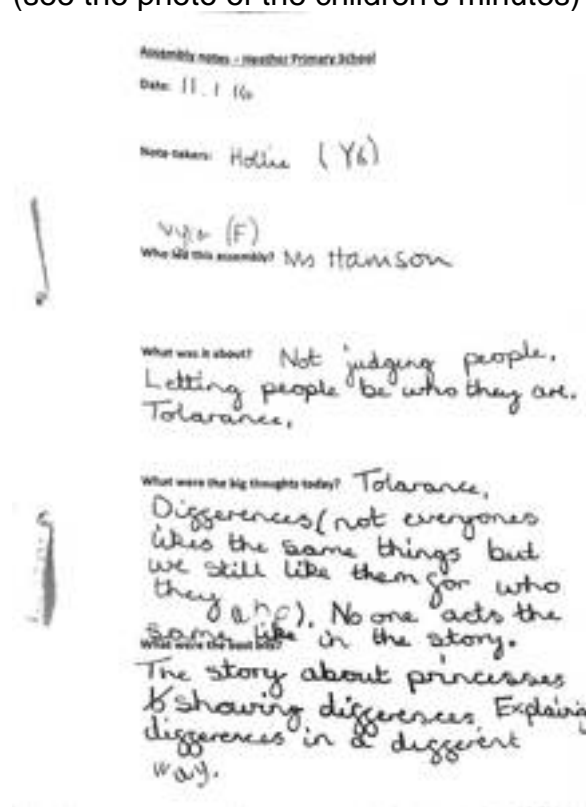 (see the photo of the children's minutes)
Assembly notes – Heather Primary School
Date: 11.1.16
Note-takers: Hollie (Y6)
(F)
Who led this assembly? Ms Hamson
What was it about? Not judging people.
Letting people be who they are.
Tolarance,
What were the big thoughts today? Tolarance,
Differences (not everyones
likes the same things but
we still like them for who
they are). No one acts the
same like in the story.
What were the best bits?
The story about princesses
& showing differences. Explaining
differences in a different
way.